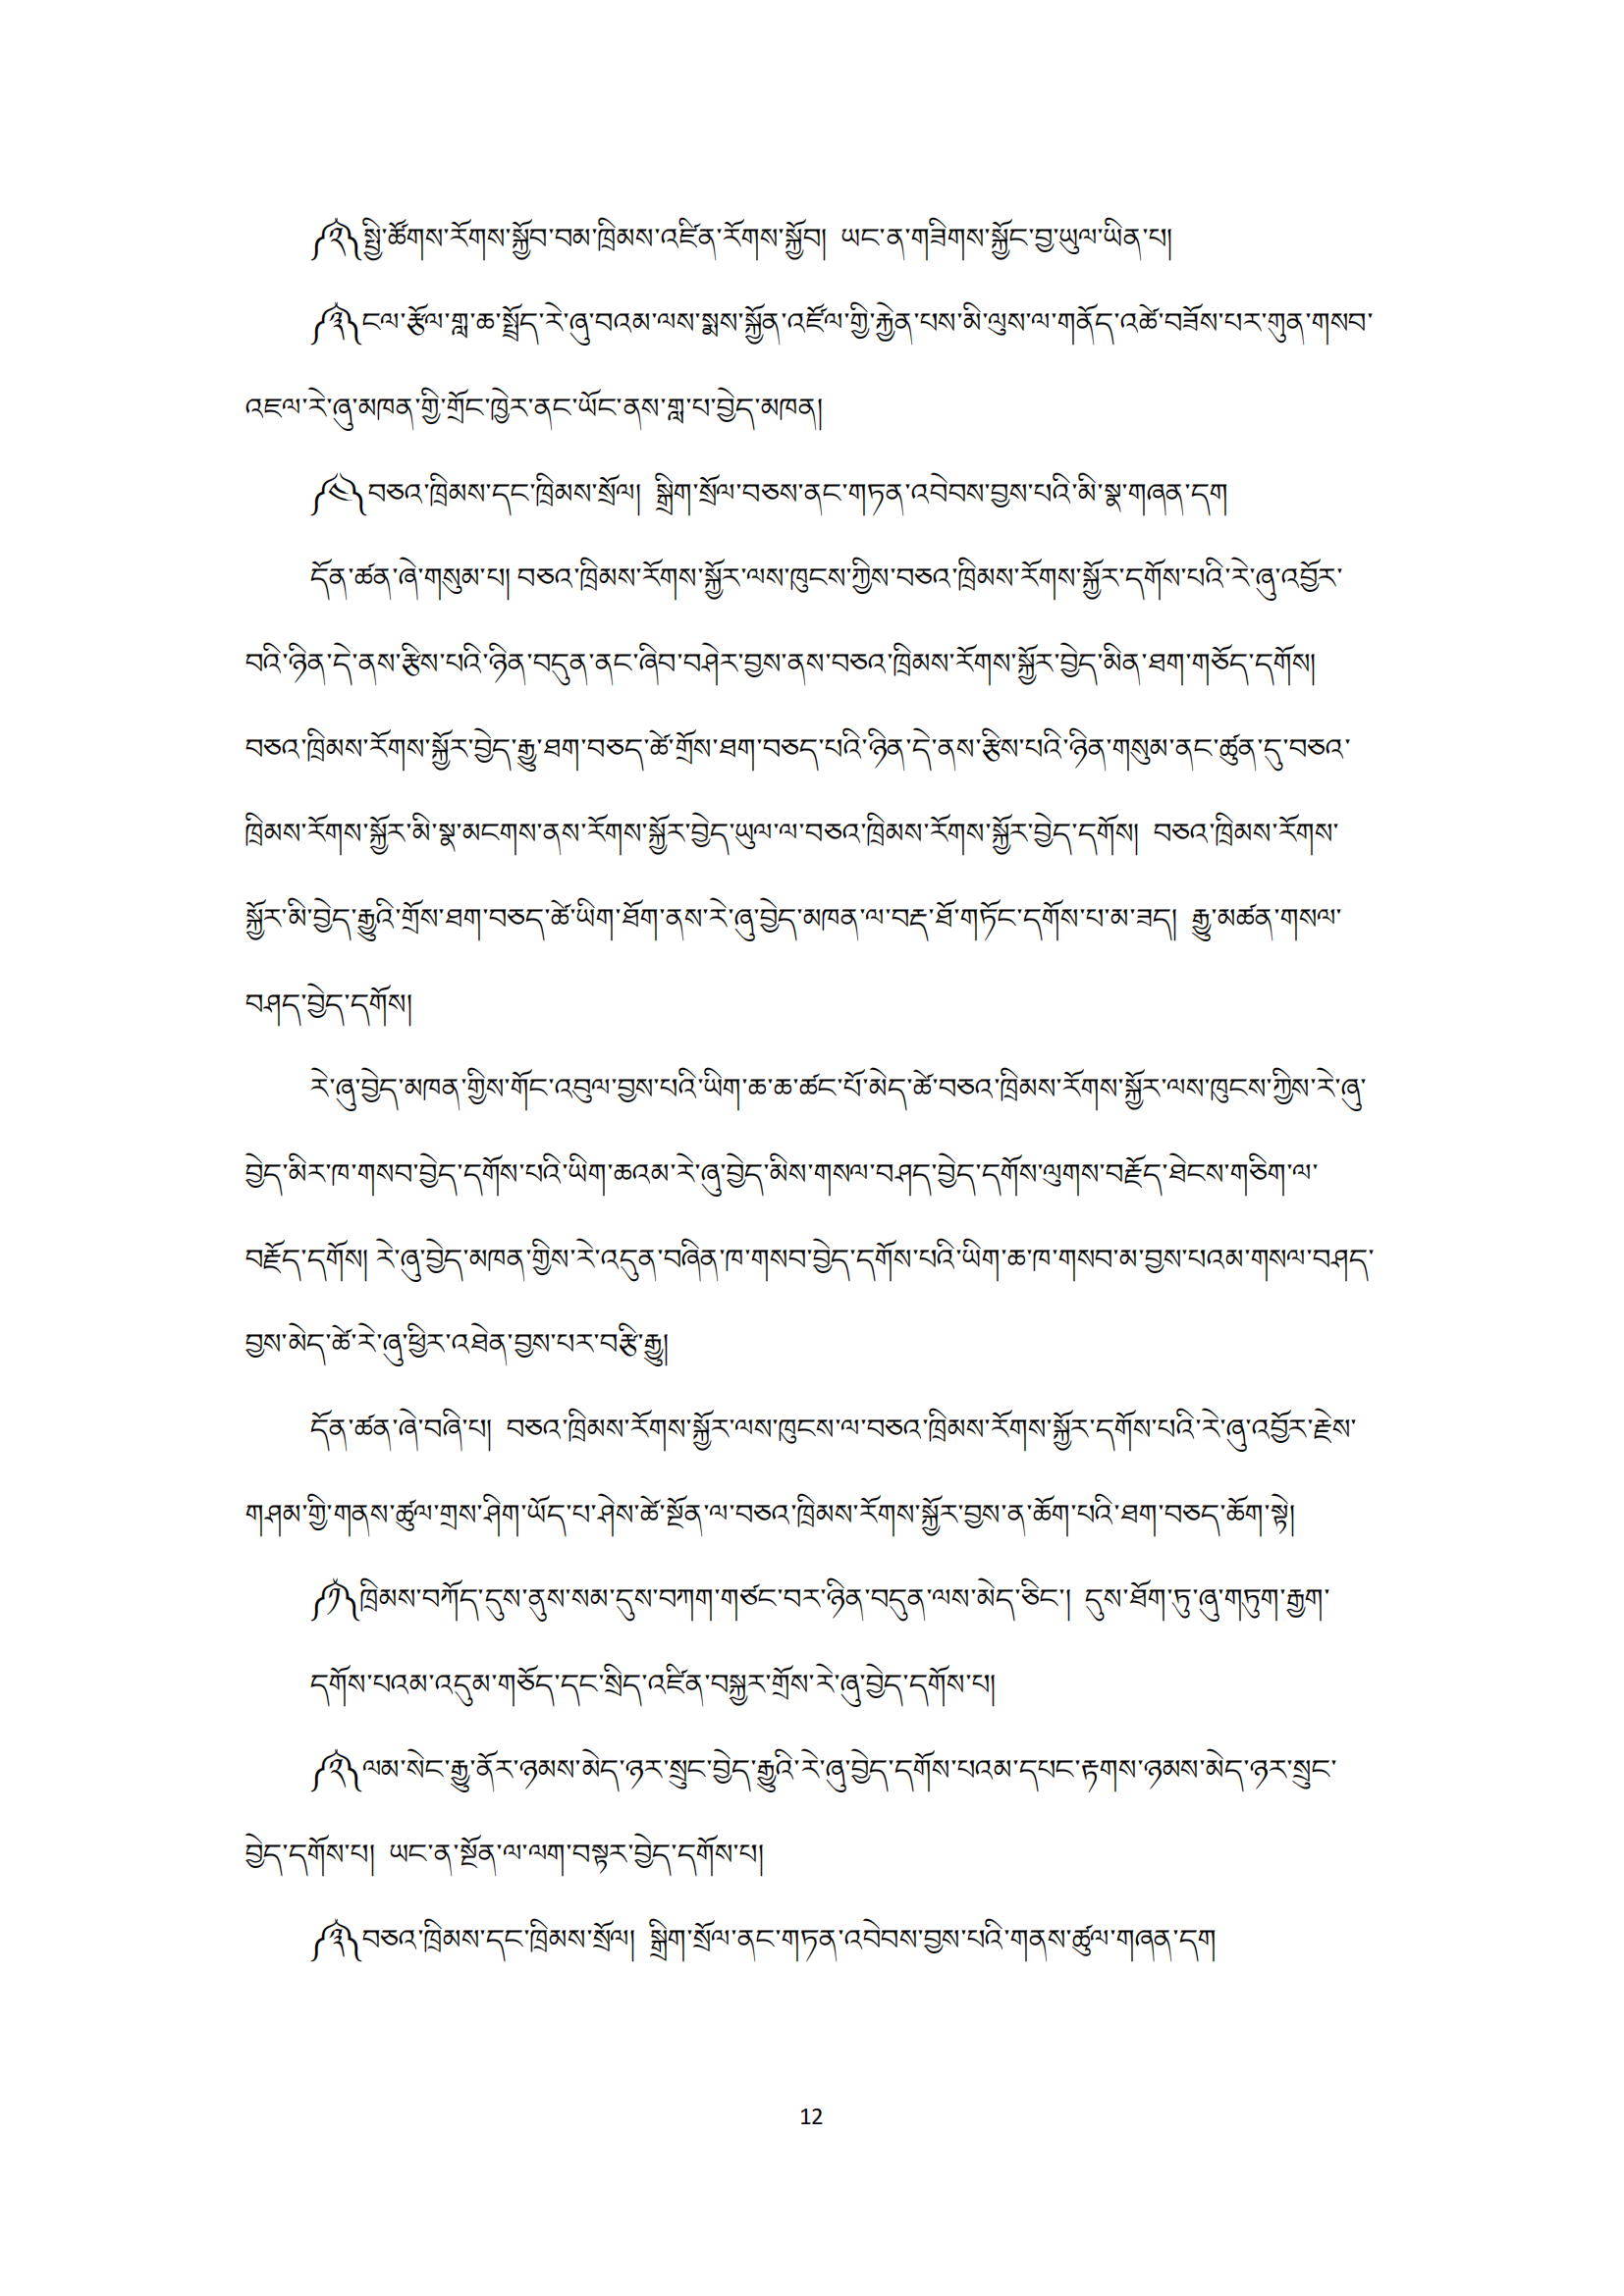 ༼༢༽སྤྱི་ཚོགས་རོགས་སྐྱོབ་བམ་ཁྲིམས་འཛིན་རོགས་སྐྱོབ། ཡང་ན་གཟིགས་སྐྱོང་བྱ་ཡུལ་ཡིན་པ།
༼༣༽ངལ་རྩོལ་གླ་ཆ་སྤྲོད་རེ་ཞུ་བའམ་ལས་སྨས་སྐྱོན་འཛོལ་གྱི་རྐྱེན་པས་མི་ལུས་ལ་གནོད་འཚེ་བཟོས་པར་གུན་གསབ་
འཇལ་རེ་ཞུ་མཁན་གྱི་གྲོང་ཁྱེར་ནང་ཡོང་ནས་གླ་པ་བྱེད་མཁན།
༼༤༽བཅའ་ཁྲིམས་དང་ཁྲིམས་སྲོལ། སྒྲིག་སྲོལ་བཅས་ནང་གཏན་འབེབས་བྱས་པའི་མི་སྣ་གཞན་དག
དོན་ཚན་ཞེ་གསུམ་པ། བཅའ་ཁྲིམས་རོགས་སྐྱོར་ལས་ཁུངས་ཀྱིས་བཅའ་ཁྲིམས་རོགས་སྐྱོར་དགོས་པའི་རེ་ཞུ་འབྱོར་
བའི་ཉིན་དེ་ནས་རྩིས་པའི་ཉིན་བདུན་ནང་ཞིབ་བཤེར་བྱས་ནས་བཅའ་ཁྲིམས་རོགས་སྐྱོར་བྱེད་མིན་ཐག་གཅོད་དགོས།
བཅའ་ཁྲིམས་རོགས་སྐྱོར་བྱེད་རྒྱུ་ཐག་བཅད་ཚེ་གྲོས་ཐག་བཅད་པའི་ཉིན་དེ་ནས་རྩིས་པའི་ཉིན་གསུམ་ནང་ཚུན་དུ་བཅའ་
ཁྲིམས་རོགས་སྐྱོར་མི་སྣ་མངགས་ནས་རོགས་སྐྱོར་བྱེད་ཡུལ་ལ་བཅའ་ཁྲིམས་རོགས་སྐྱོར་བྱེད་དགོས། བཅའ་ཁྲིམས་རོགས་
སྐྱོར་མི་བྱེད་རྒྱུའི་གྲོས་ཐག་བཅད་ཚེ་ཡིག་ཐོག་ནས་རེ་ཞུ་བྱེད་མཁན་ལ་བརྡ་ཐོ་གཏོང་དགོས་པ་མ་ཟད། རྒྱུ་མཚན་གསལ་
བཤད་བྱེད་དགོས།
རེ་ཞུ་བྱེད་མཁན་གྱིས་གོང་འབུལ་བྱས་པའི་ཡིག་ཆ་ཆ་ཚང་པོ་མེད་ཚེ་བཅའ་ཁྲིམས་རོགས་སྐྱོར་ལས་ཁུངས་ཀྱིས་རེ་ཞུ་
བྱེད་མིར་ཁ་གསབ་བྱེད་དགོས་པའི་ཡིག་ཆའམ་རེ་ཞུ་བྱེད་མིས་གསལ་བཤད་བྱེད་དགོས་ལུགས་བརྗོད་ཐེངས་གཅིག་ལ་
བརྗོད་དགོས། རེ་ཞུ་བྱེད་མཁན་གྱིས་རེ་འདུན་བཞིན་ཁ་གསབ་བྱེད་དགོས་པའི་ཡིག་ཆ་ཁ་གསབ་མ་བྱས་པའམ་གསལ་བཤད་
བྱས་མེད་ཚེ་རེ་ཞུ་ཕྱིར་འཐེན་བྱས་པར་བརྩི་རྒྱུ།
དོན་ཚན་ཞེ་བཞི་པ། བཅའ་ཁྲིམས་རོགས་སྐྱོར་ལས་ཁུངས་ལ་བཅའ་ཁྲིམས་རོགས་སྐྱོར་དགོས་པའི་རེ་ཞུ་འབྱོར་རྗེས་
གཤམ་གྱི་གནས་ཚུལ་གྲས་ཤིག་ཡོད་པ་ཤེས་ཚེ་སྔོན་ལ་བཅའ་ཁྲིམས་རོགས་སྐྱོར་བྱས་ན་ཆོག་པའི་ཐག་བཅད་ཆོག་སྟེ།
༼༡༽ཁྲིམས་བཀོད་དུས་ནུས་སམ་དུས་བཀག་གཙང་བར་ཉིན་བདུན་ལས་མེད་ཅིང་། དུས་ཐོག་ཏུ་ཞུ་གཏུག་རྒྱག་
དགོས་པའམ་འདུམ་གཅོད་དང་སྲིད་འཛིན་བསྐྱར་གྲོས་རེ་ཞུ་བྱེད་དགོས་པ།
༼༢༽ལམ་སེང་རྒྱུ་ནོར་ཉམས་མེད་ཉར་སྲུང་བྱེད་རྒྱུའི་རེ་ཞུ་བྱེད་དགོས་པའམ་དཔང་རྟགས་ཉམས་མེད་ཉར་སྲུང་
བྱེད་དགོས་པ། ཡང་ན་སྔོན་ལ་ལག་བསྟར་བྱེད་དགོས་པ།
༼༣༽བཅའ་ཁྲིམས་དང་ཁྲིམས་སྲོལ། སྒྲིག་སྲོལ་ནང་གཏན་འབེབས་བྱས་པའི་གནས་ཚུལ་གཞན་དག
12